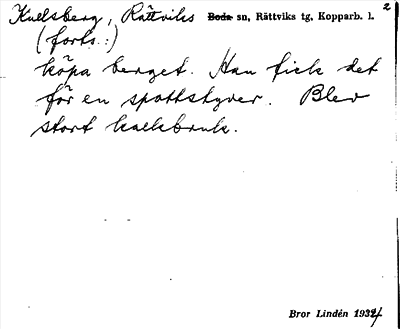 2
Kullsberg, Rättviks Boda sn, Rättviks tg, Kopparb. l.
(forts.:)
köpa berget. Han fick det
för en spottstyver. Blev
stort kalkbruk.
Bror Lindén 1934